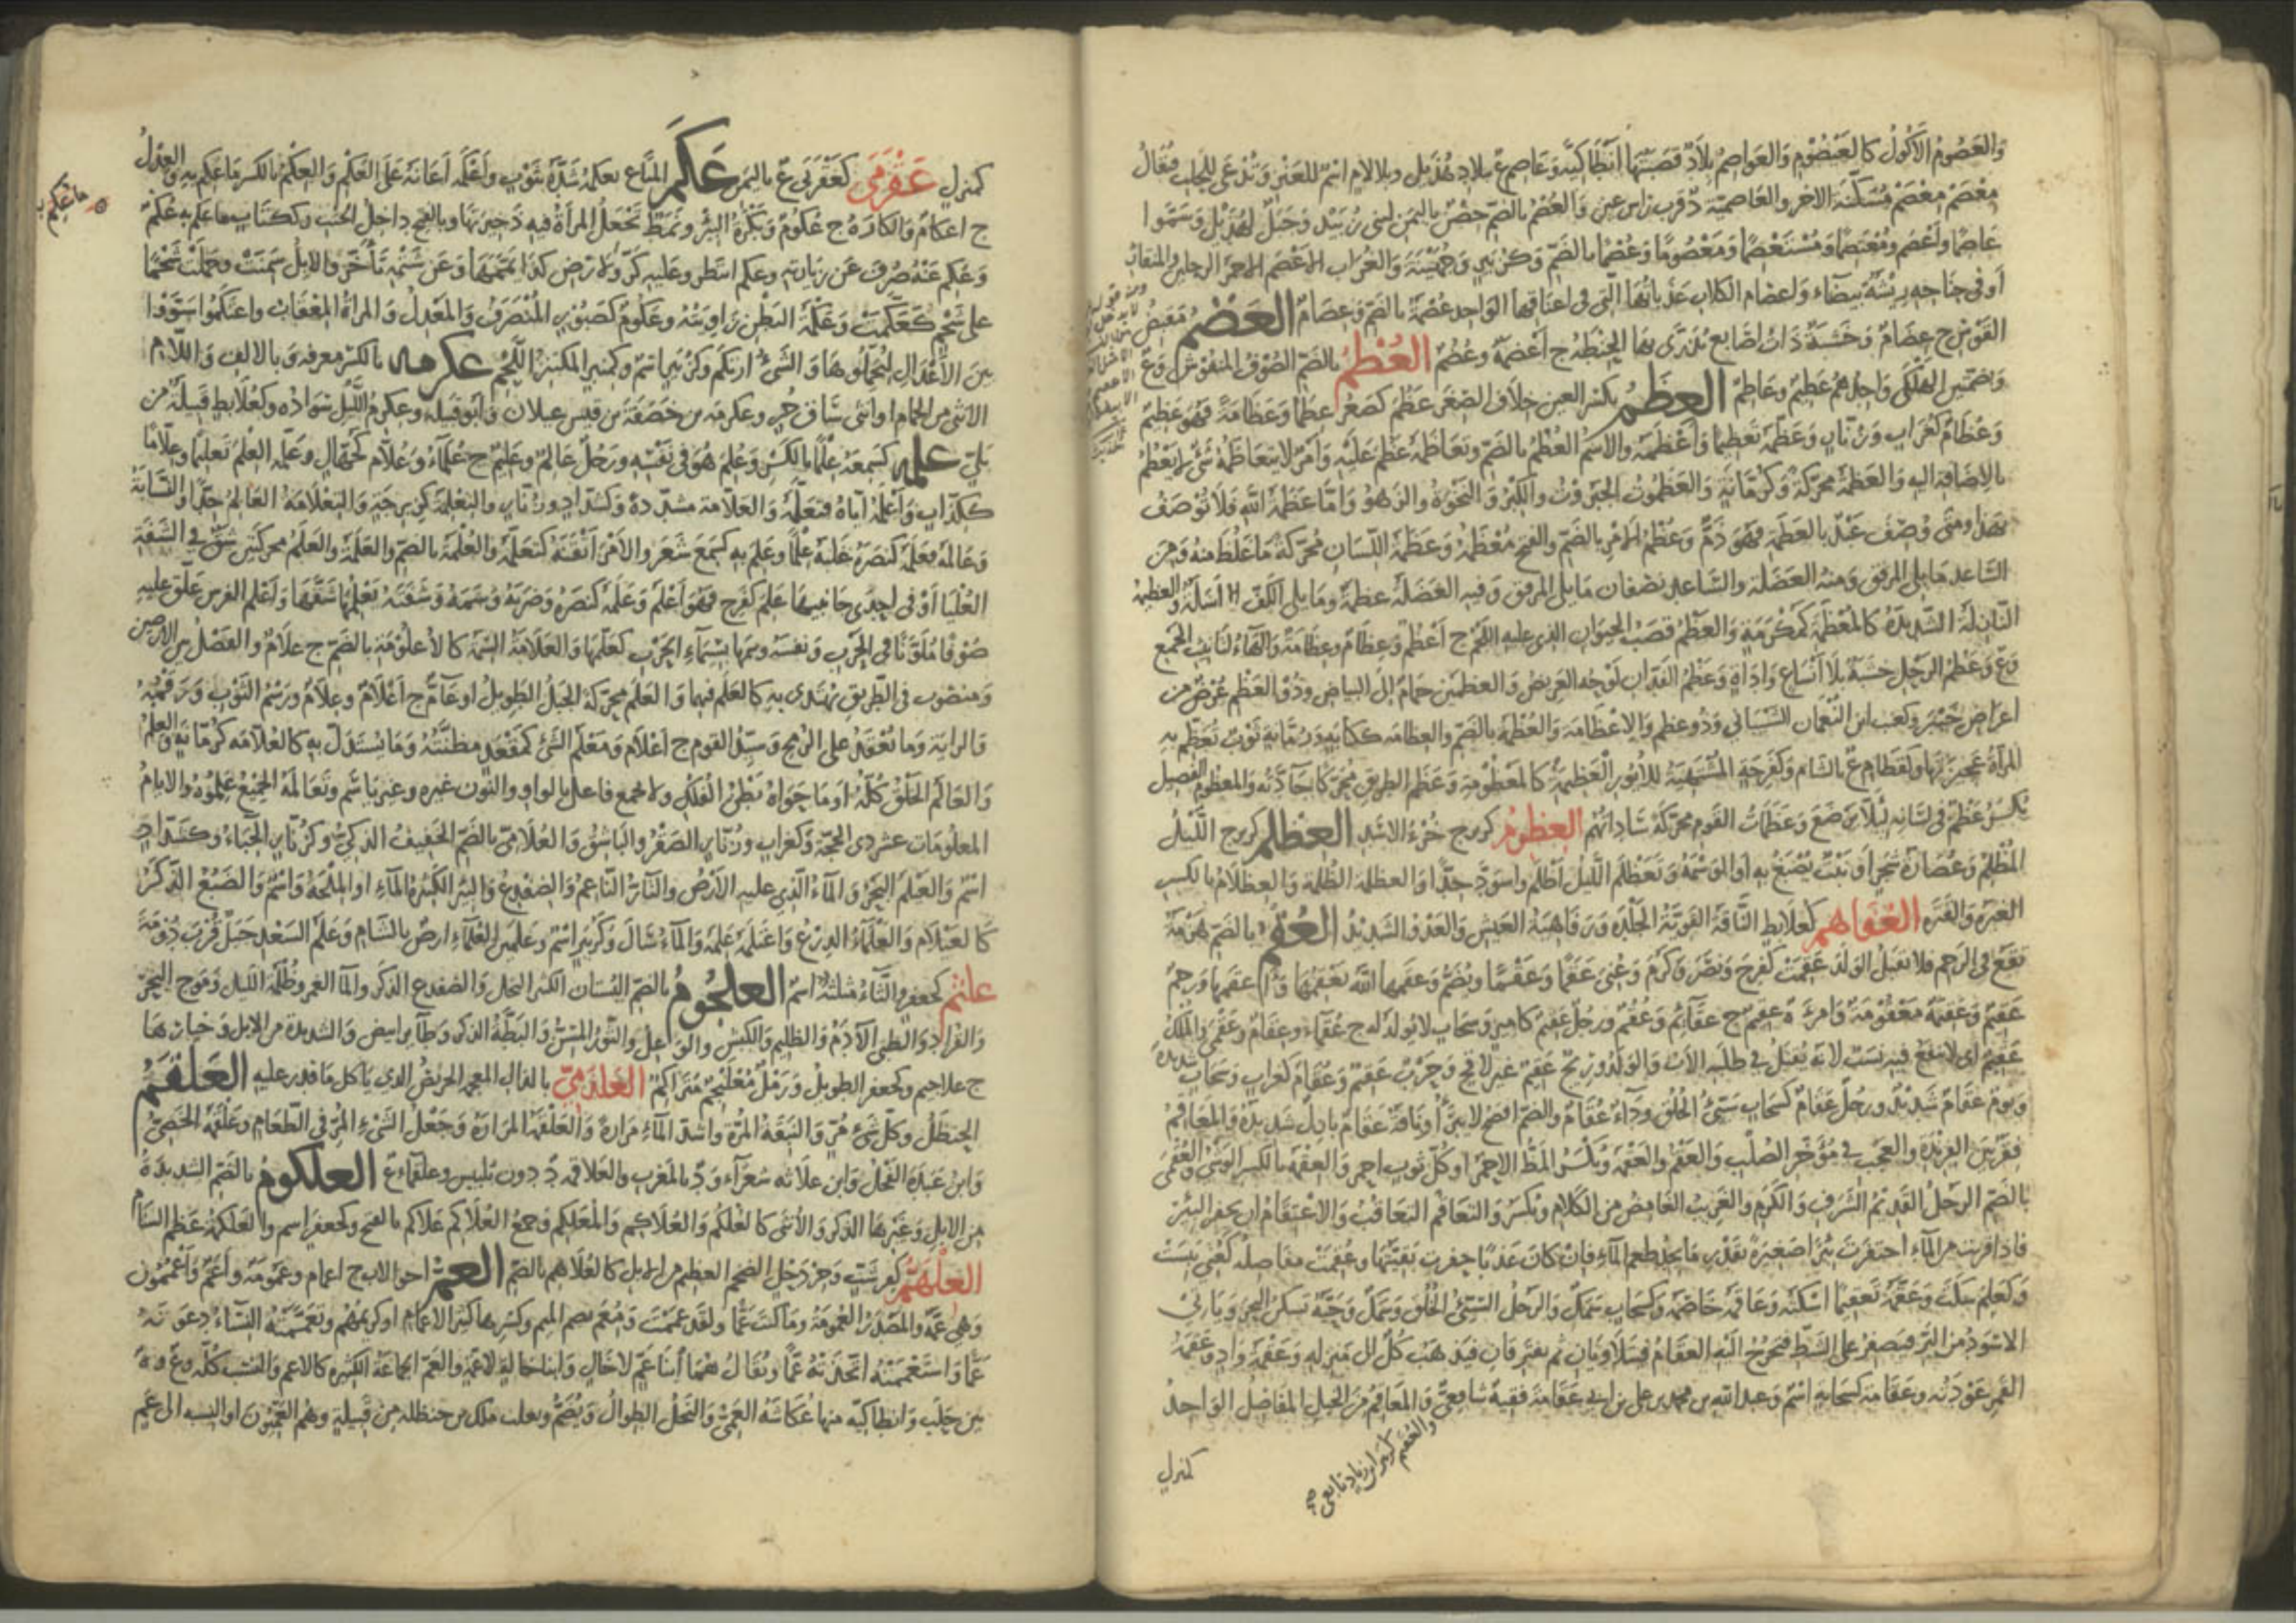 والعصوم الأكول كالعيصوم والعواصم بلاد قصبتها أنطاكية وعاصم ع ببلاد هذيل وبلا لام اسم للعنز وتدعى للحلب فيقال
معصم معصم مسكنة الاخر والعاصمية ة قرب راس عين والعصم بالضم حصن باليمن لبنى زبيد وجبل لهذيل وسموا
عاصما وأعصم ومعتصما ومستعصما ومعصوما وعصما بالضم وكزبير وجهينة والغراب الاعصم الاحمر الرجلين والمنقار
أو في جناحه ريشة بيضاء واعصام الكلاب عذباتها التي في اعناقها الواحد عصمة بالضم وعصام العضم مقبض
القوس ج عضام وخشبة ذات اصابع تذرى بها الحنطة ج أعضمة وعضم العظم بالضم الصوف المنفوش وع
وبضمتين الهلكى واحدهم عظيم وعاظم العظم بكسر العين خلاف الصغر عظم كصغر عظما وعظامة فهو عظيم
وعظام كغراب وزنار وعظمه تعظيما وأعظمه والاسم العظم بالضم وتعاظمه عظم عليه وأمر لا يتعاظمه شئ لا يعظم
بالاضافة اليه والعظمة محركة وكرمانة والعظموت الجبروت والكبر والنخوة والزهو وأما عظمة الله فلا توصف
بهذا ومتى وصف عبد بالعظمة فهو ذم وعظم الامر بالضم والفتح معظمه وعظمة اللسان محركة ما غلظ منه ومن
الساعد ما يلي المرفق ومنه العضلة والساعد نصفان ما يلي المرفق وفيه العضلة عظمة وما يلي الكف اسلة والعظيمة
النازلة الشديدة كالمعظمة كمكرمة والعظم قصب الحيوان الذي عليه اللحم ج أعظم وعظام وعظامة والهاء لتانيث الجمع
وع وعظم الرحل خشبة بلا أنساع واداة وعظم الفدان لوحه العريض والعظمين حمام لل البياض وذو العظم عرض من
اعراض خيبر وكعب ابن النعمان الشيباني وذو عظم والاعظامة والعظمة بالضم والعظامه ككتابة ورمانة ثوب تعظم به
المرأة عجيزتها وكقطام ع بالشام وكفرحة المشتهية للأيور العظيمة كالمعظومة وعظم الطريق محركا جادته والمعظوم الفصيل
يكسر عظم في لسانه لئلا يرضع وعظمات القوم محركة ساداتهم العظوم كزبرج خرء الاسد العظلم كزبرج الليل
المظلم وعصارة شجر أو نبت يصبغ به أو الوسمة وتعظلم الليل أظلم واسود جدا والعظلمة الظلمة والعظلام بالكسر
الغبرة والقترة العفاهم كعلابط الناقة القوية الجلدة ورفاهية العيش والعدو الشديد العقم بالضم هزمة
تقع في الرحم فلا تقبل الولد عقمت كفرح ونصر وكرم وعنى عقما وعقما ويضم وعقمها الله يعقمها وأعقمها ورحم
عقيم وعقيمة معقومة وامرءة عقيم ج عقائم وعقم ورجل عقيم كامير وسحاب لا يولد له ج عقماء وعقام وعقمى والملك
عقيم اى لا ينفع فيه نسب لانه يقتل في طلبه الاب والولد وريح عقيم غير لاقح وحرب عقيم وعقام كغراب وسحاب شديدة
ويوم عقام شديد ورجل عقام كسحاب سيئ الخلق وداء عقام والضم افصح لا يبرأ وناقة عقام بازل شديدة والمعاقم
فقر بين الفريدة والعجب في مؤخر الصلب والعقم والعقمة ويكسر المرط الاحمر او كل ثوب احمر والعقمة بالكسر الوشي والعقمى
بالضم الرجل القديم الشرف والكرم والغريب الغامض من الكلام ويكسر والتعاقم التعاقب والاعتقام ان يحفر البئر
فاذا قربت من الماء احتفرت بئرا صغيرة بقدر ما تجد طعم الماء فان كان عذبا حفرت بقيتها وعقمت مفاصله كعنى يبست
وكعلم سكت وعقمه تعقيما اسكته وعاقمه خاصمه وكسحاب سمك والرجل السيئ الخلق وسمك وحية تسكن البحر ويأتي
الاسود من البر فيصفر على الشط فيخرج اليه العقام فيتلاويان ثم يفترقان فيذهب كل الى منزله وعقمة واد وعقمة
القمر عودته وعقامة كسحابة اسم وعبد الله بن محمد بن علي بن ابي عقامة فقيه شافعي والمعاقم من الخيل المفاصل الواحد
والعقيم كزبير ابن زياد تابعي صح
كمنزل
كمنزل عقرمى كعقربى ع باليمن عكم المتاع يعكمه شده بثوب وأعكمه أعانه على العكم والعكم بالكسر ما عكم به والعدل
ما عكم به
ج اعكام والكارة ج عكوم وبكرة البئر ونمط تجعل المرأة فيه ذخيرتها وبالفتح داخل الجنب وككتاب ما عكم به ج عكم
وعكم عنه صرف عن زيارته وعكم انتظر وعليه كر ولارض كذا يممها وعن شتمه تأخر والابل سمنت وحملت شحما
على شحم كعكمت وعكمة البطن زاويته وعكوم كصبور المنصرف والمعدل والمرأة المعقاب واعتكموا سووا
بين الأعدال ليحملوها والشئ ارتكم وكزبير اسم وكمنبر المكتنز اللحم عكرمه بالكسر معرفة وبالالف واللام
الانثى من الحمام او انثى ساق حر وعكرمة بن خصفة بن قيس عيلان وأبو قبيلة وعكرم الليل سواده وكعلابط قبيلة من
بلى علمه كسمعه علما بالكسر وعلم هو في نفسه ورجل عالم وعليم ج علماء وعلام كجهال وعلمه العلم تعليما وعلاما
ككذاب وأعلمه اياه فتعلمه والعلامة مشددة وكشداد وزنار والتعلمة كزبرجة والتعلامة العالم جدا والنسابة
وعالمه فعلمه كنصره غلبه علما وعلم به كسمع شعر والأمر أتقنه كتعلمه والعلمة بالضم والعلمة والعلم محركتين شق في الشفة
العليا أو في احدى جانبيها علم كفرح فهو أعلم وعلمه كنصره وضربه وسمه وشفته يعلمها شقها وأعلم الفرس علق عليه
صوفا ملونا في الحرب ونفسه وسمها بسيماء الحرب كعلمها والعلامة السمة كالأعلومة بالضم ج علام والفصل بين الارضين
ومنصوب في الطريق يهتدى به كالعلم فيهما والعلم محركة الجبل الطويل او عام ج أعلام وعلام ورسم الثوب ورقمه
والراية وما يعقد على الرمح وسيد القوم ج أعلام ومعلم الشئ كمقعد مظنته وما يستدل به كالعلامه كرمانة والعلم
والعالم الخلق كله او ما حواه بطن الفلك ولا يجمع فاعل بالواو والنون غيره وغير ياسم وتعالمه الجميع علموه والايام
المعلومات عشر ذي الحجة وكغراب وزنار الصقر والباشق والعلامى بالضم الخفيف الذكى وكزنار الحناء وكشداد
اسم والعيلم البحر والماء الذي عليه الارض والتار الناعم والضفدع والبئر الكثيرة الماء او الملحة واسم والضبع الذكر
كالعيلام والعلماء الدرع واعتلمه علمه والماء سال وكزبير اسم وعلمين العلماء ارض بالشام وعلم السعد جبل قرب دومة
علثم كجعفر والثاء مثلثة اسم العلجوم بالضم البستان الكثير النخل والضفدع الذكر والماء الغمر وظلمة الليل وموج البحر
والقراد والظبى الآدم والظليم والكبش والوعل والثور المسن والبطة الذكر وطائر ابيض والشديدة من الابل وخيارها
ج علاجيم وكجعفر الطويل ورمل معلنجم متراكم العلذمى بالذال المعجمة الحريص الذي يأكل ما قدر عليه العلقم
الحنظل وكل شئ مر والنبقة المرة واشد الماء مرارة والعلقمة المرارة وجعل الشئ المر في الطعام وعلقمة الخصى
وابن عبدة الفحل وابن علاثة شعراء ود بالمغرب والعلاقمة ة دون بلبيس وعلقماء ع العلكوم بالضم الشديدة
من الابل وغيرها الذكر والأنثى كالعلكم والعلاكم والمعلكم وجمع العلاكم علاكم بالفتح وكجعفر اسم والعلكمة عظم السنام
العلهم كقرشب وجردحل الضخم العظيم من الابل كالعلاهم بالضم العم اخو الاب ج اعمام وعمومة وأعم وأعممون
وهي عمة والمصدر العمومة وما كنت عما ولقد عممت ومعم بضم الميم وكسرها كثير الاعمام او كريمهم وتعممته النساء دعونه
عما واستعممته اتخذته عما ويقال هما ابنا عم لا خال وابنا خالة لا عمة والعم الجماعة الكثيرة كالاعم والعشب كله وع وة
بين حلب وانطاكية منها عكاشة العمى والنخل الطوال ويضم ولقب مالك بن حنظلة من قبيلة وهم العميون او النسبة الى عم